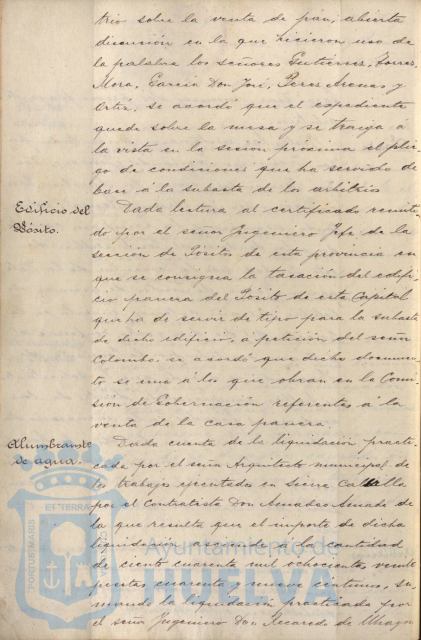 trio sobre la venta de pan, abierta
discusión en la que hicieron uso de
la palabra los señores Gutierrez, Torres,
Mora, García Don José, Perez Arenas y
Ortiz, se acordó que el expediente
quede sobre la mesa y se traiga á
la vista en la sesión próxima el plie-
go de condiciones que ha servido de
base á la subasta de los arbitrios
Edificio del
Pósito.
Dada lectura al certificado remiti-
do por el señor Ingeniero Jefe de la
sección de Pósitos de esta provincia en
que se consigna la tasación del edifi-
cio panera del Pósito de esta Capital
que ha de servir de tipo para la subasta
de dicho edificio, a petición del señor
Colombo, se acordó que dicho documen-
to se una á los que obran en la Comi-
sión de Gobernación referentes á la
venta de la casa panera.
Alumbramto
de agua.
Dada cuenta de la liquidación practi-
cada por el señor Arquitecto municipal de
los trabajos ejecutados en
por el Contratista Don Amadeo Amado de
la que resulta que el importe de dicha
liquidación asciende a la cantidad
de ciento cuarenta mil ochocientas veinte
pesetas cuarenta y nueve céntimos, su-
mando la liquidación practicada por
el señor Ingeniero Don Recaredo de Uhagon
PORTUS MARIS
ET TERRAE
Ayuntamiento de
HUELVA